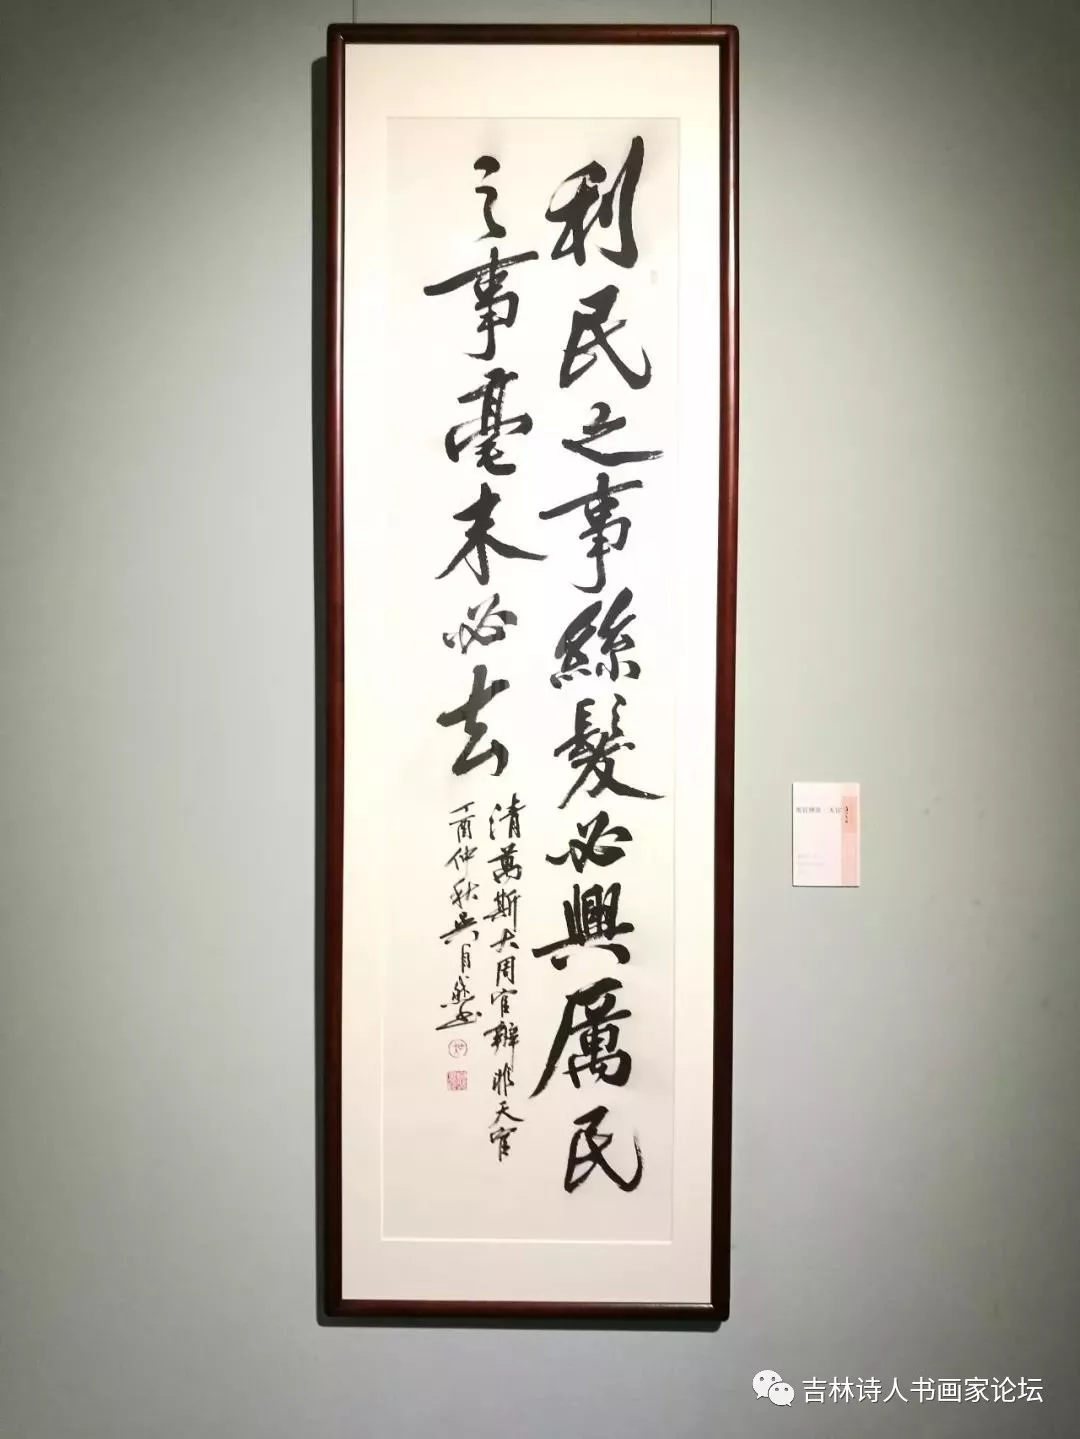 利民之事絲髮必興厲民
之事毫末必去
清萬斯大周官辨非天官
丁酉仲秋吳自然书
周官辨非·天官
吉林诗人书画家论坛